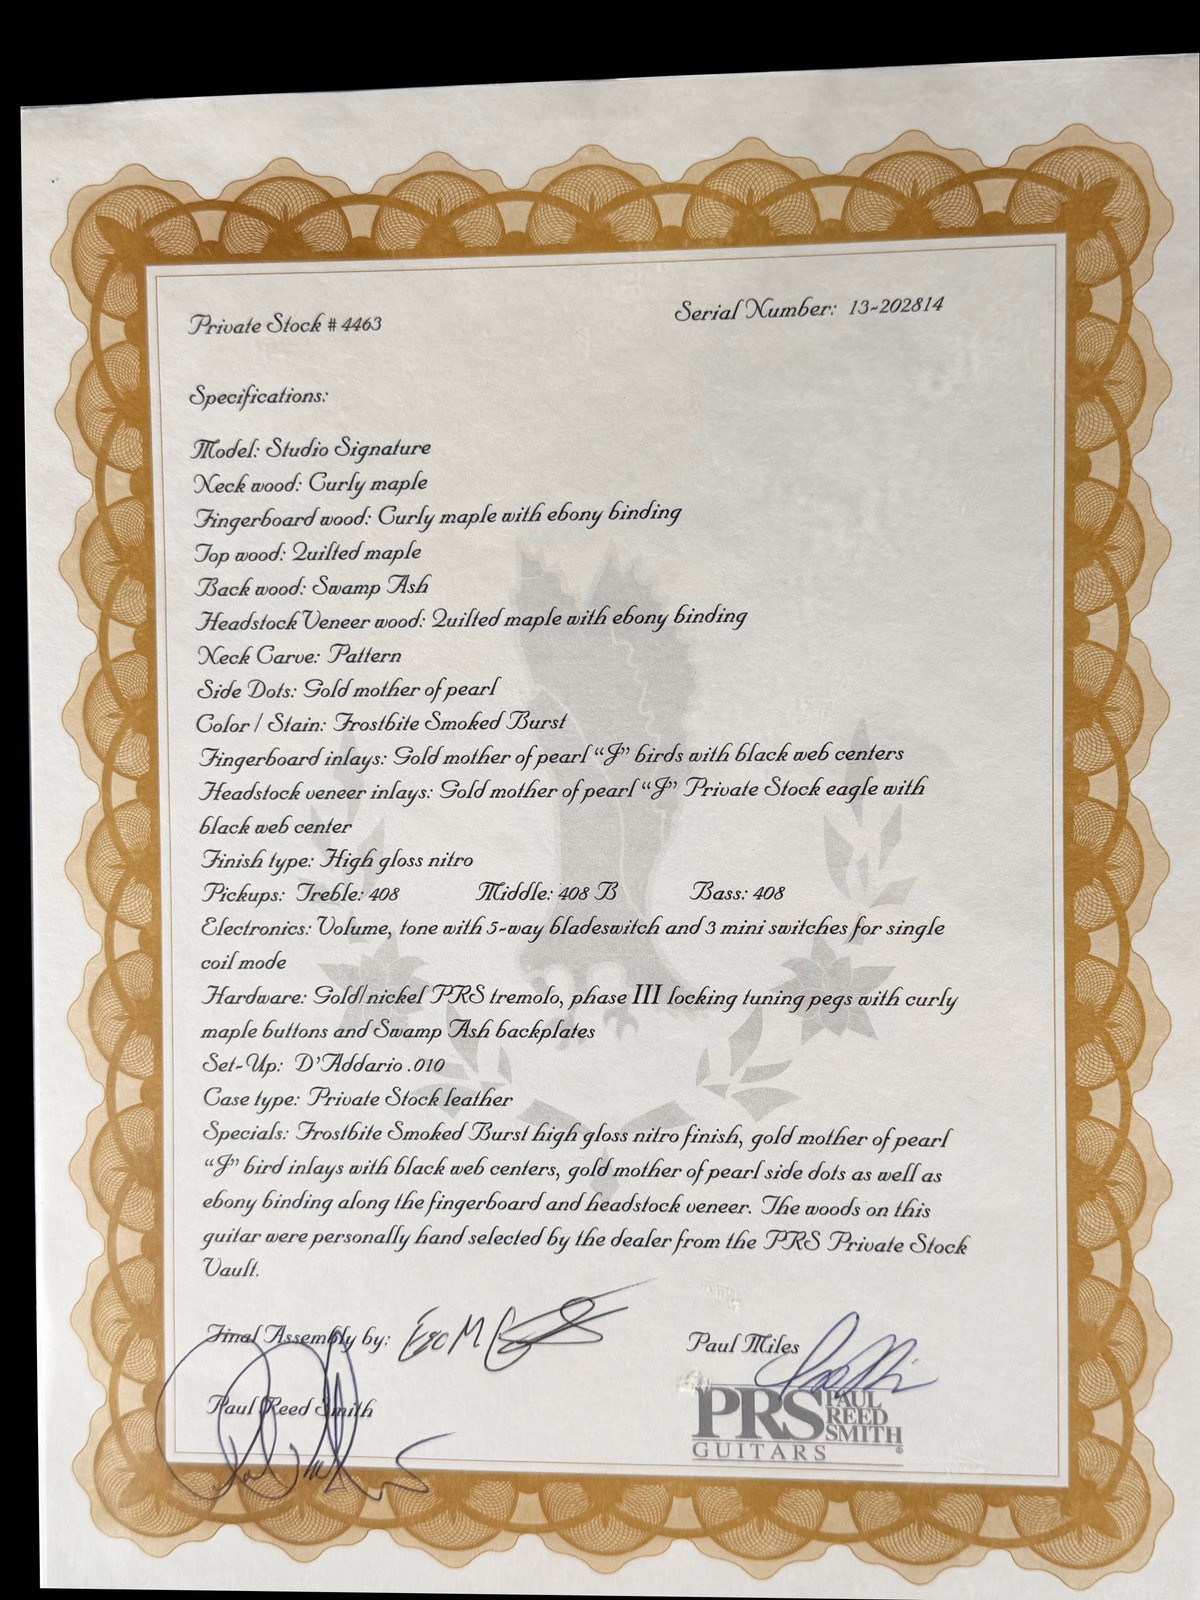 Private Stock # 4463
Serial Number: 13-202814
Specifications:
Model: Studio Signature
Neck wood: Curly maple
Fingerboard wood: Curly maple with ebony binding
Top wood: Quilted maple
Back wood: Swamp Ash
Headstock Veneer wood: Quilted maple with ebony binding
Neck Carve: Pattern
Side Dots: Gold mother of pearl
Color / Stain: Frostbite Smoked Burst
Fingerboard inlays: Gold mother of pearl “J” birds with black web centers
Headstock veneer inlays: Gold mother of pearl “J” Private Stock eagle with
black web center
Finish type: High gloss nitro
Pickups: Treble: 408 Middle: 408 B Bass: 408
Electronics: Volume, tone with 5-way bladeswitch and 3 mini switches for single
coil mode
Hardware: Gold/nickel PRS tremolo, phase III locking tuning pegs with curly
maple buttons and Swamp Ash backplates
Set-Up: D'Addario .010
Case type: Private Stock leather
Specials: Frostbite Smoked Burst high gloss nitro finish, gold mother of pearl
“J” bird inlays with black web centers, gold mother of pearl side dots as well as
ebony binding along the fingerboard and headstock veneer. The woods on this
guitar were personally hand selected by the dealer from the PRS Private Stock
Vault.
Final Assembly by:
Paul Miles
Paul Reed Smith
PRS PAUL REED SMITH
GUITARS ®